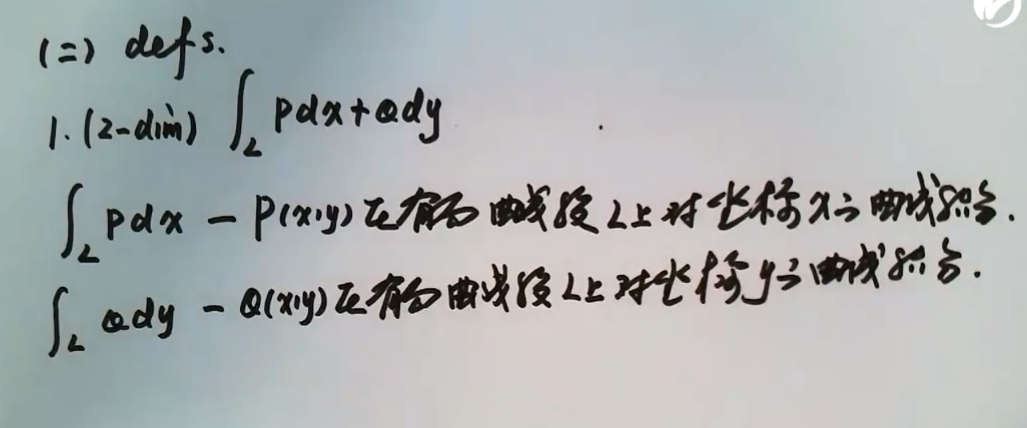 (二) defs.
1. (2-dim) ∫_L Pdx+Qdy
∫_L Pdx — P(x,y)在有向曲线段L上对坐标x之曲线积分.
∫_L Qdy — Q(x,y)在有向曲线段L上对坐标y之曲线积分.